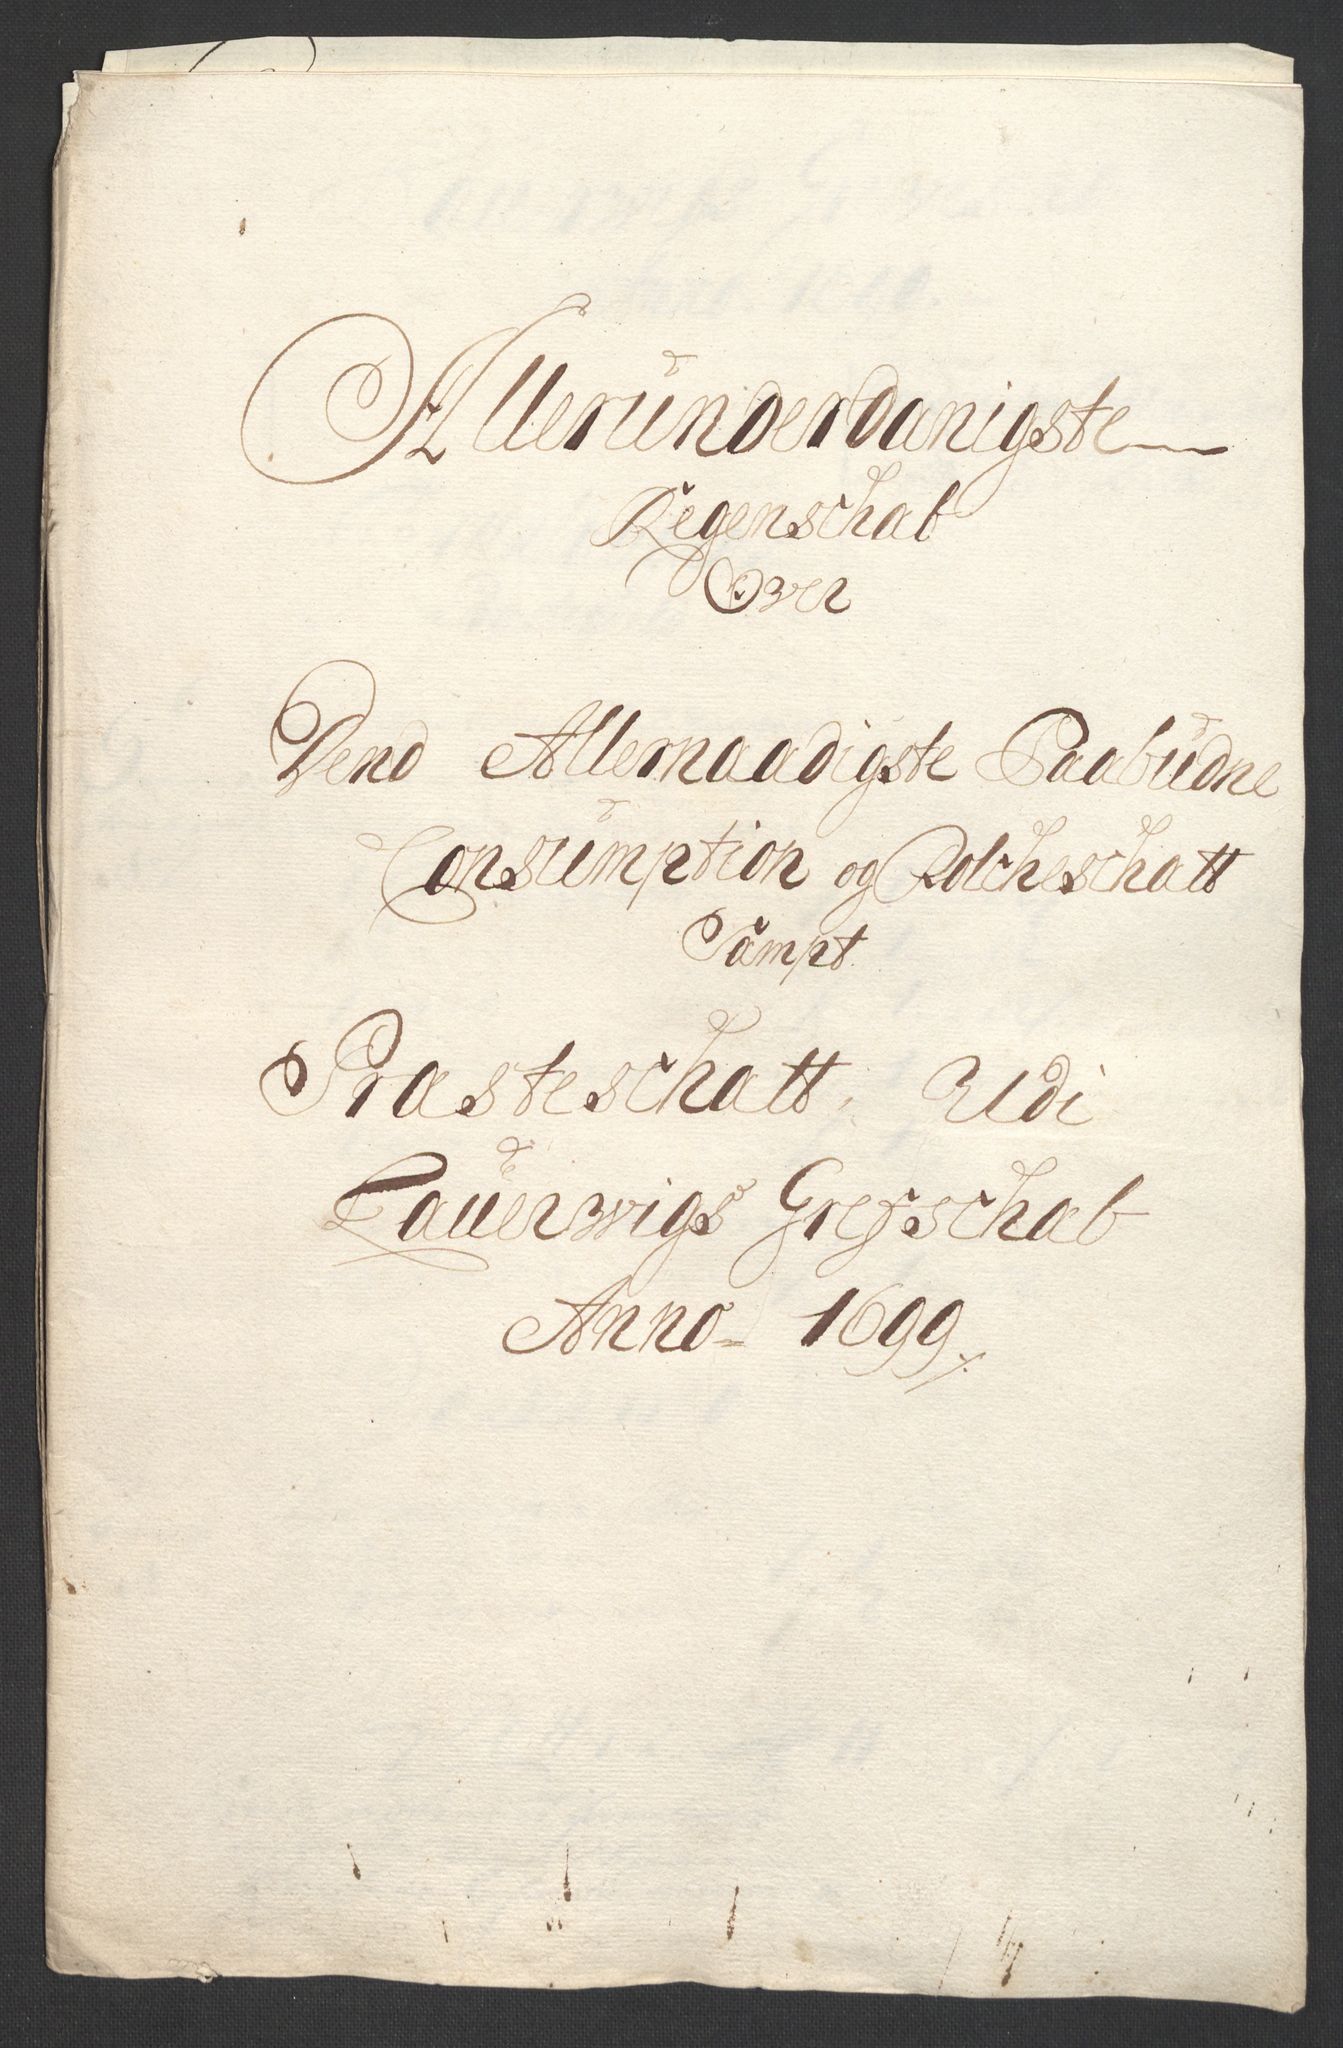 Alleründerdanigste
Regenschab
Over
Dend Allernaadigste Paabüdne
Consümption og Folcheschatt
Sampt
Præsteschatt, Udi
Laüervigs Grefschab
Anno 1699